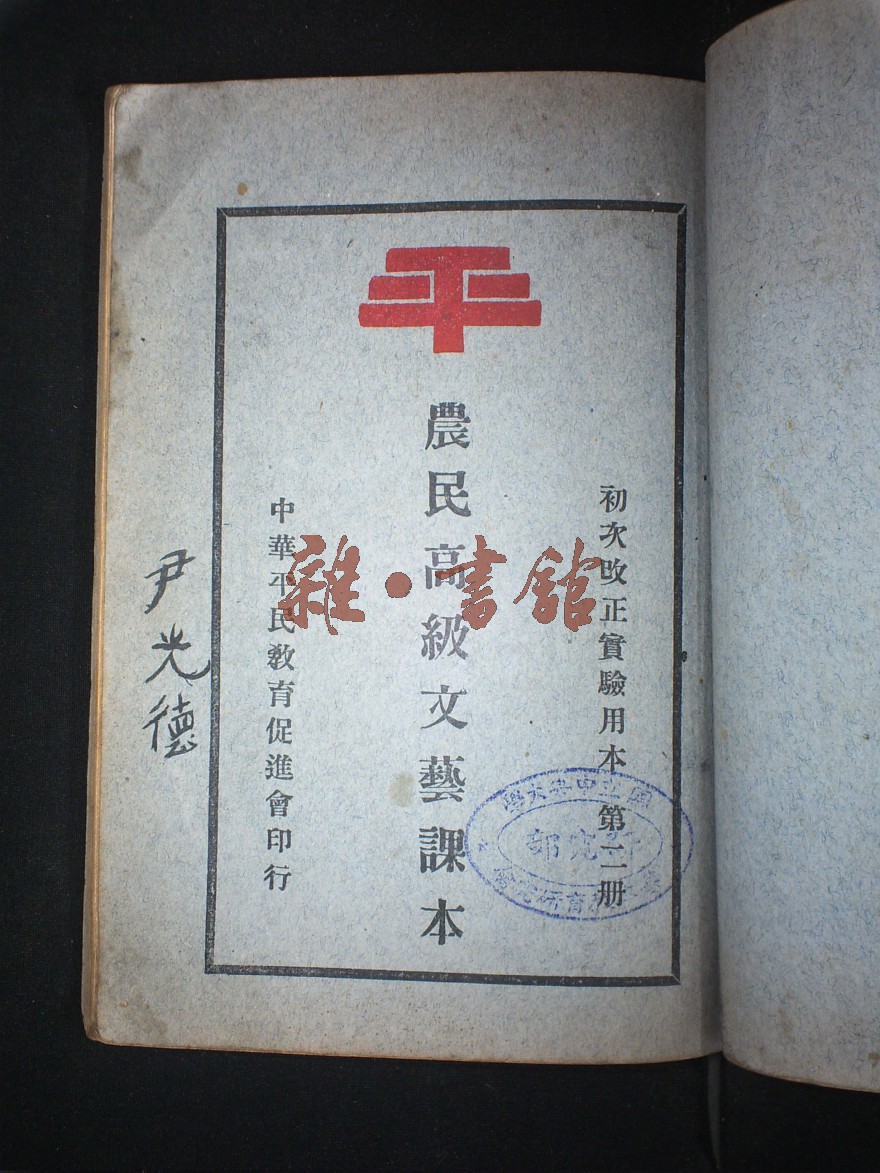 平
初次改正實驗用本 第二册
農民高級文藝課本
中華平民教育促進會印行
尹光德
雜·書館
國立中央大學
研究部